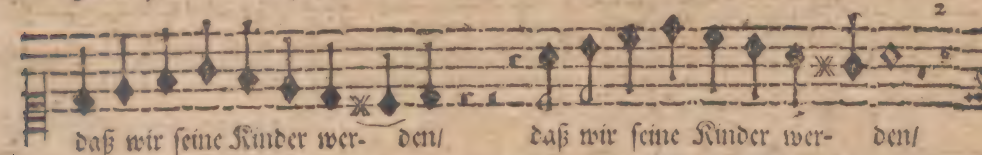 2
daß wir seine Kinder wer- den/ daß wir seine Kinder wer- den/